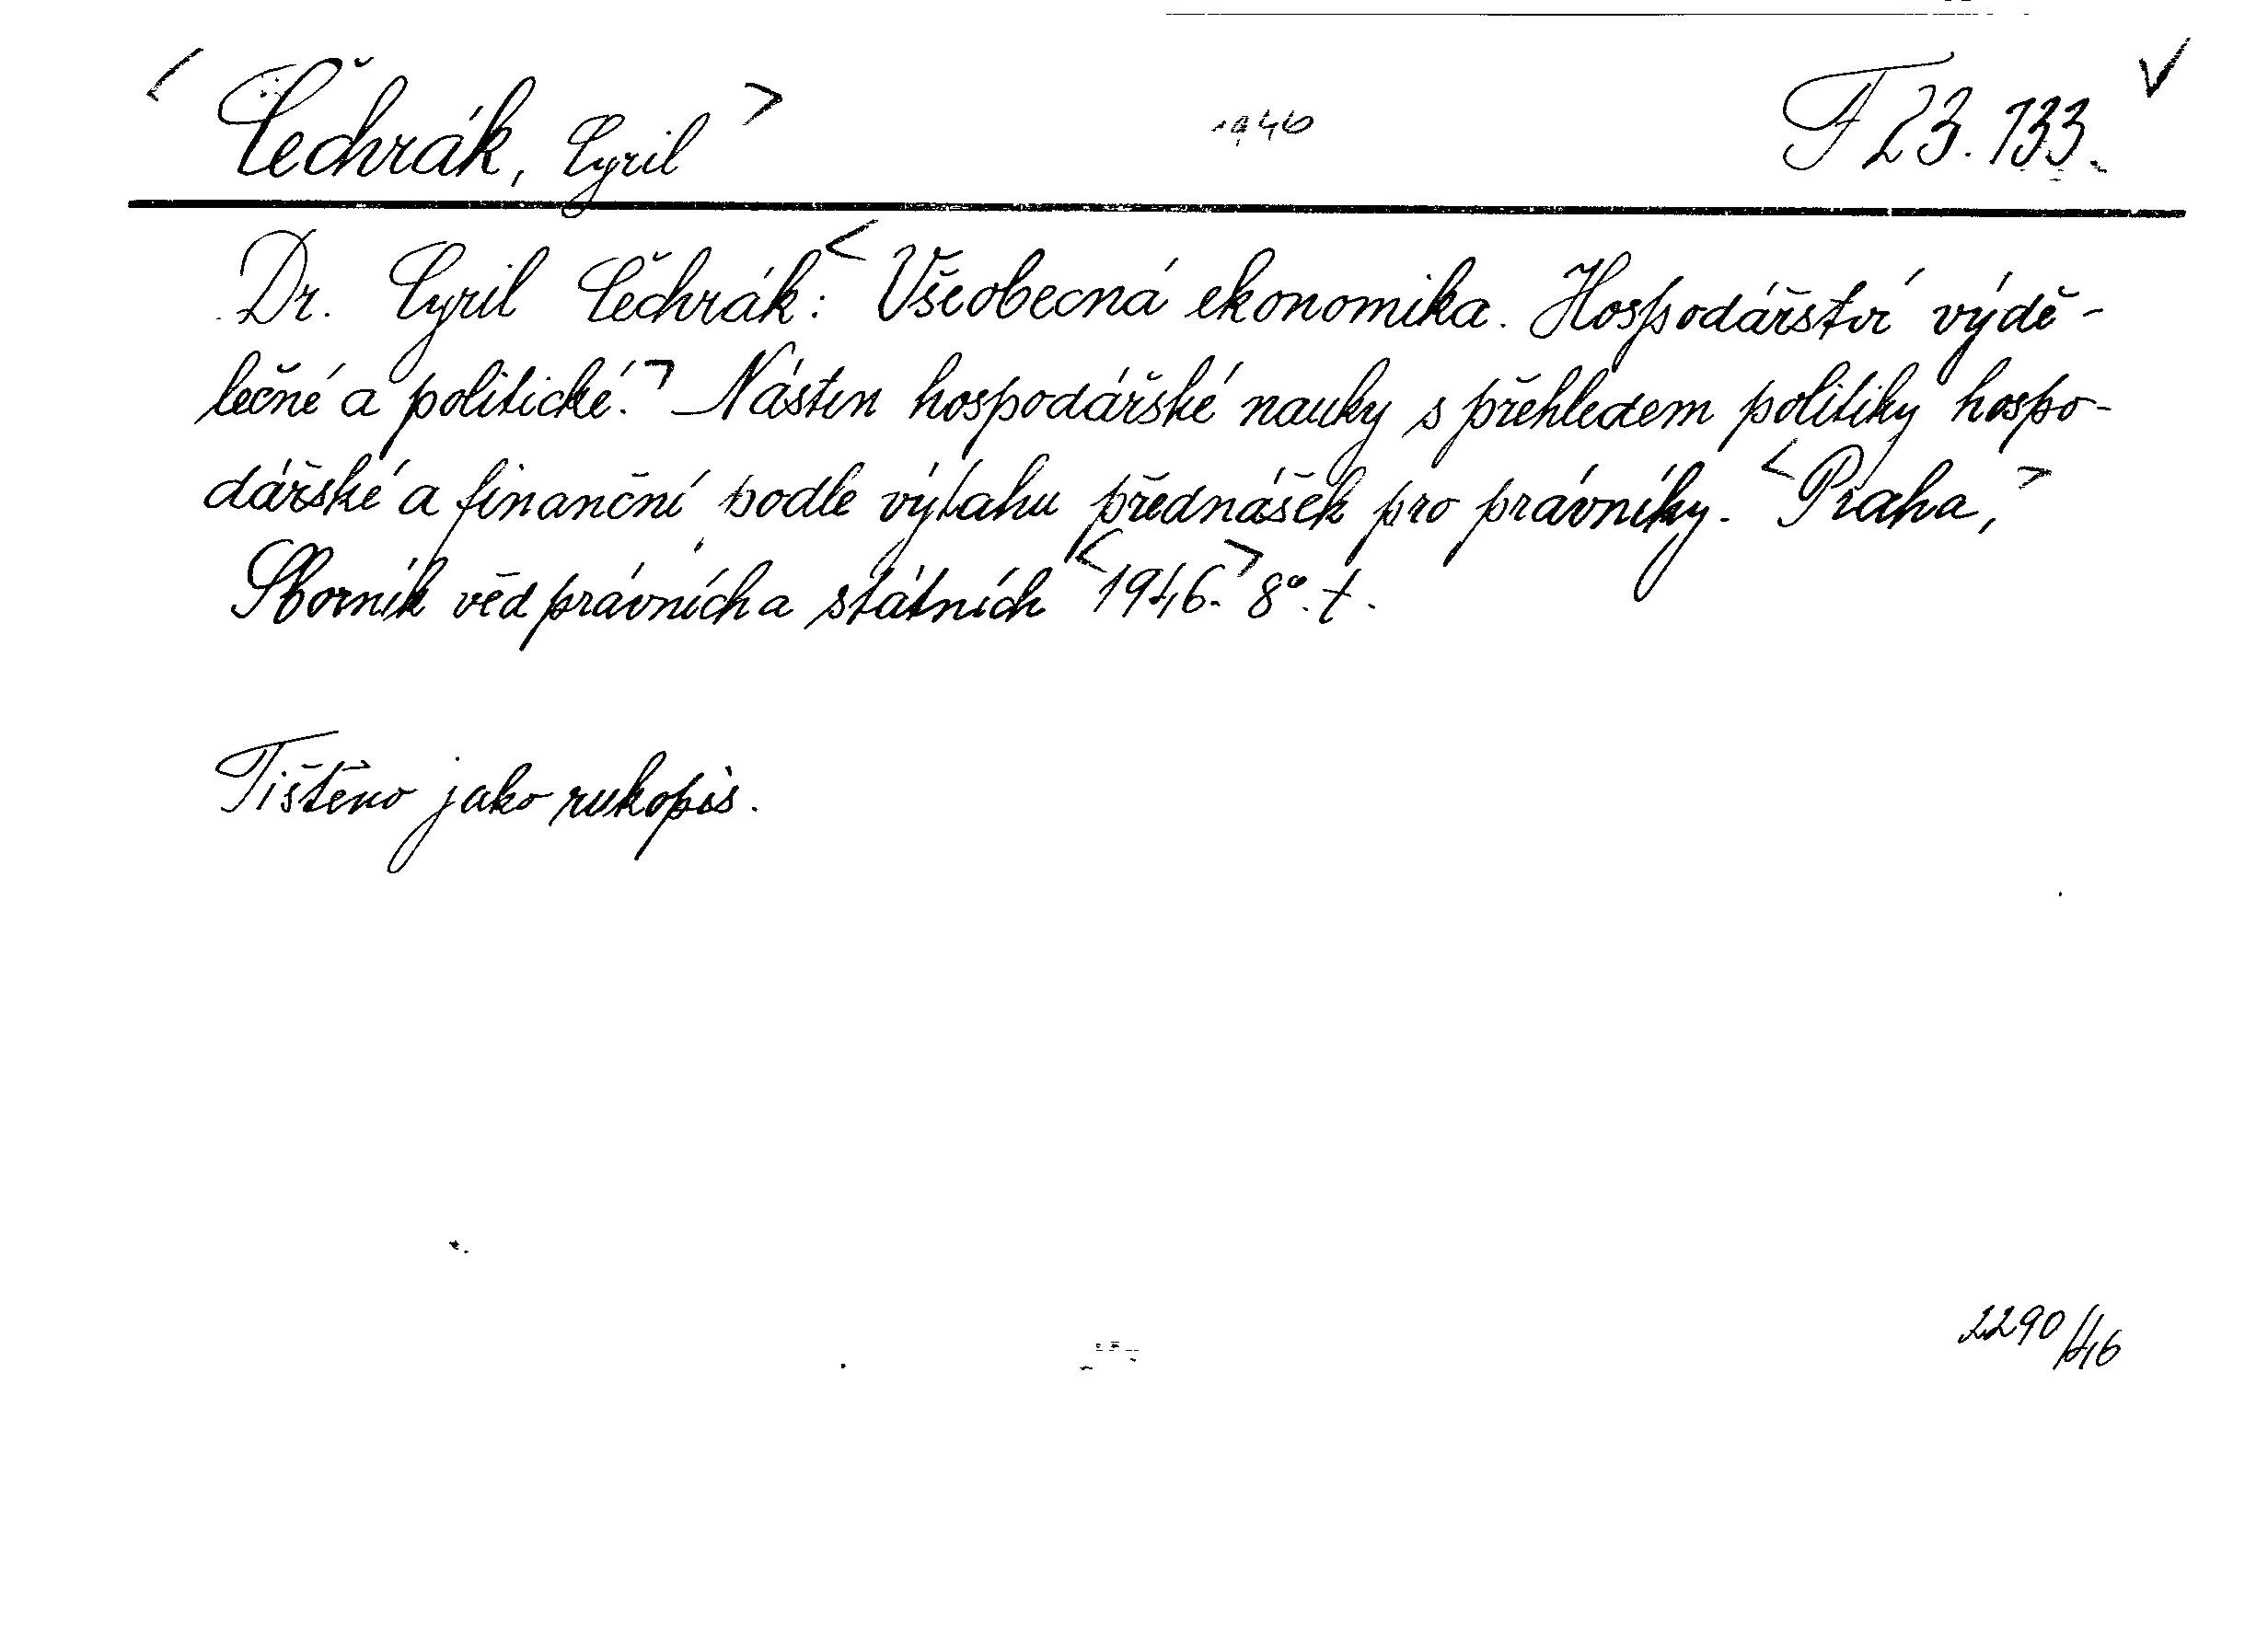 < Čechrák, Cyril > 1946 F 23.133. V
Dr. Cyril Čechrák: < Všeobecná ekonomika. Hospodářství výdě-
lečné a politické. > Nástin hospodářské nauky s přehledem politiky hospo-
dářské a finanční podle výtahu přednášek pro právníky. < Praha, >
Sborník věd právních a státních < 1946. > 8°. t.
Tištěno jako rukopis.
2290/46